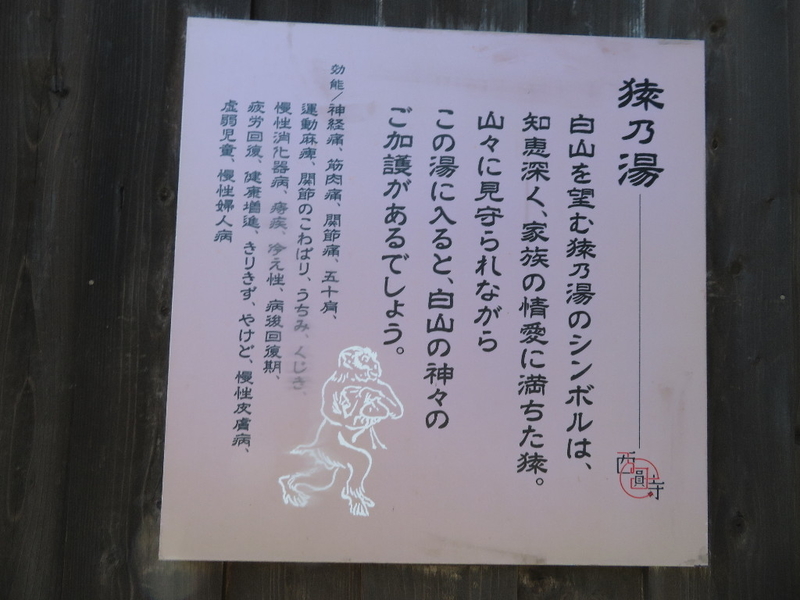 猿乃湯
西圓寺
白山を望む猿乃湯のシンボルは、
知恵深く、家族の情愛に満ちた猿。
山々に見守られながら
この湯に入ると、白山の神々の
ご加護があるでしょう。
効能/神経痛、筋肉痛、関節痛、五十肩、
運動麻痺、関節のこわばり、うちみ、くじき、
慢性消化器病、痔疾、冷え性、病後回復期、
疲労回復、健康増進、きりきず、やけど、慢性皮膚病、
虚弱児童、慢性婦人病